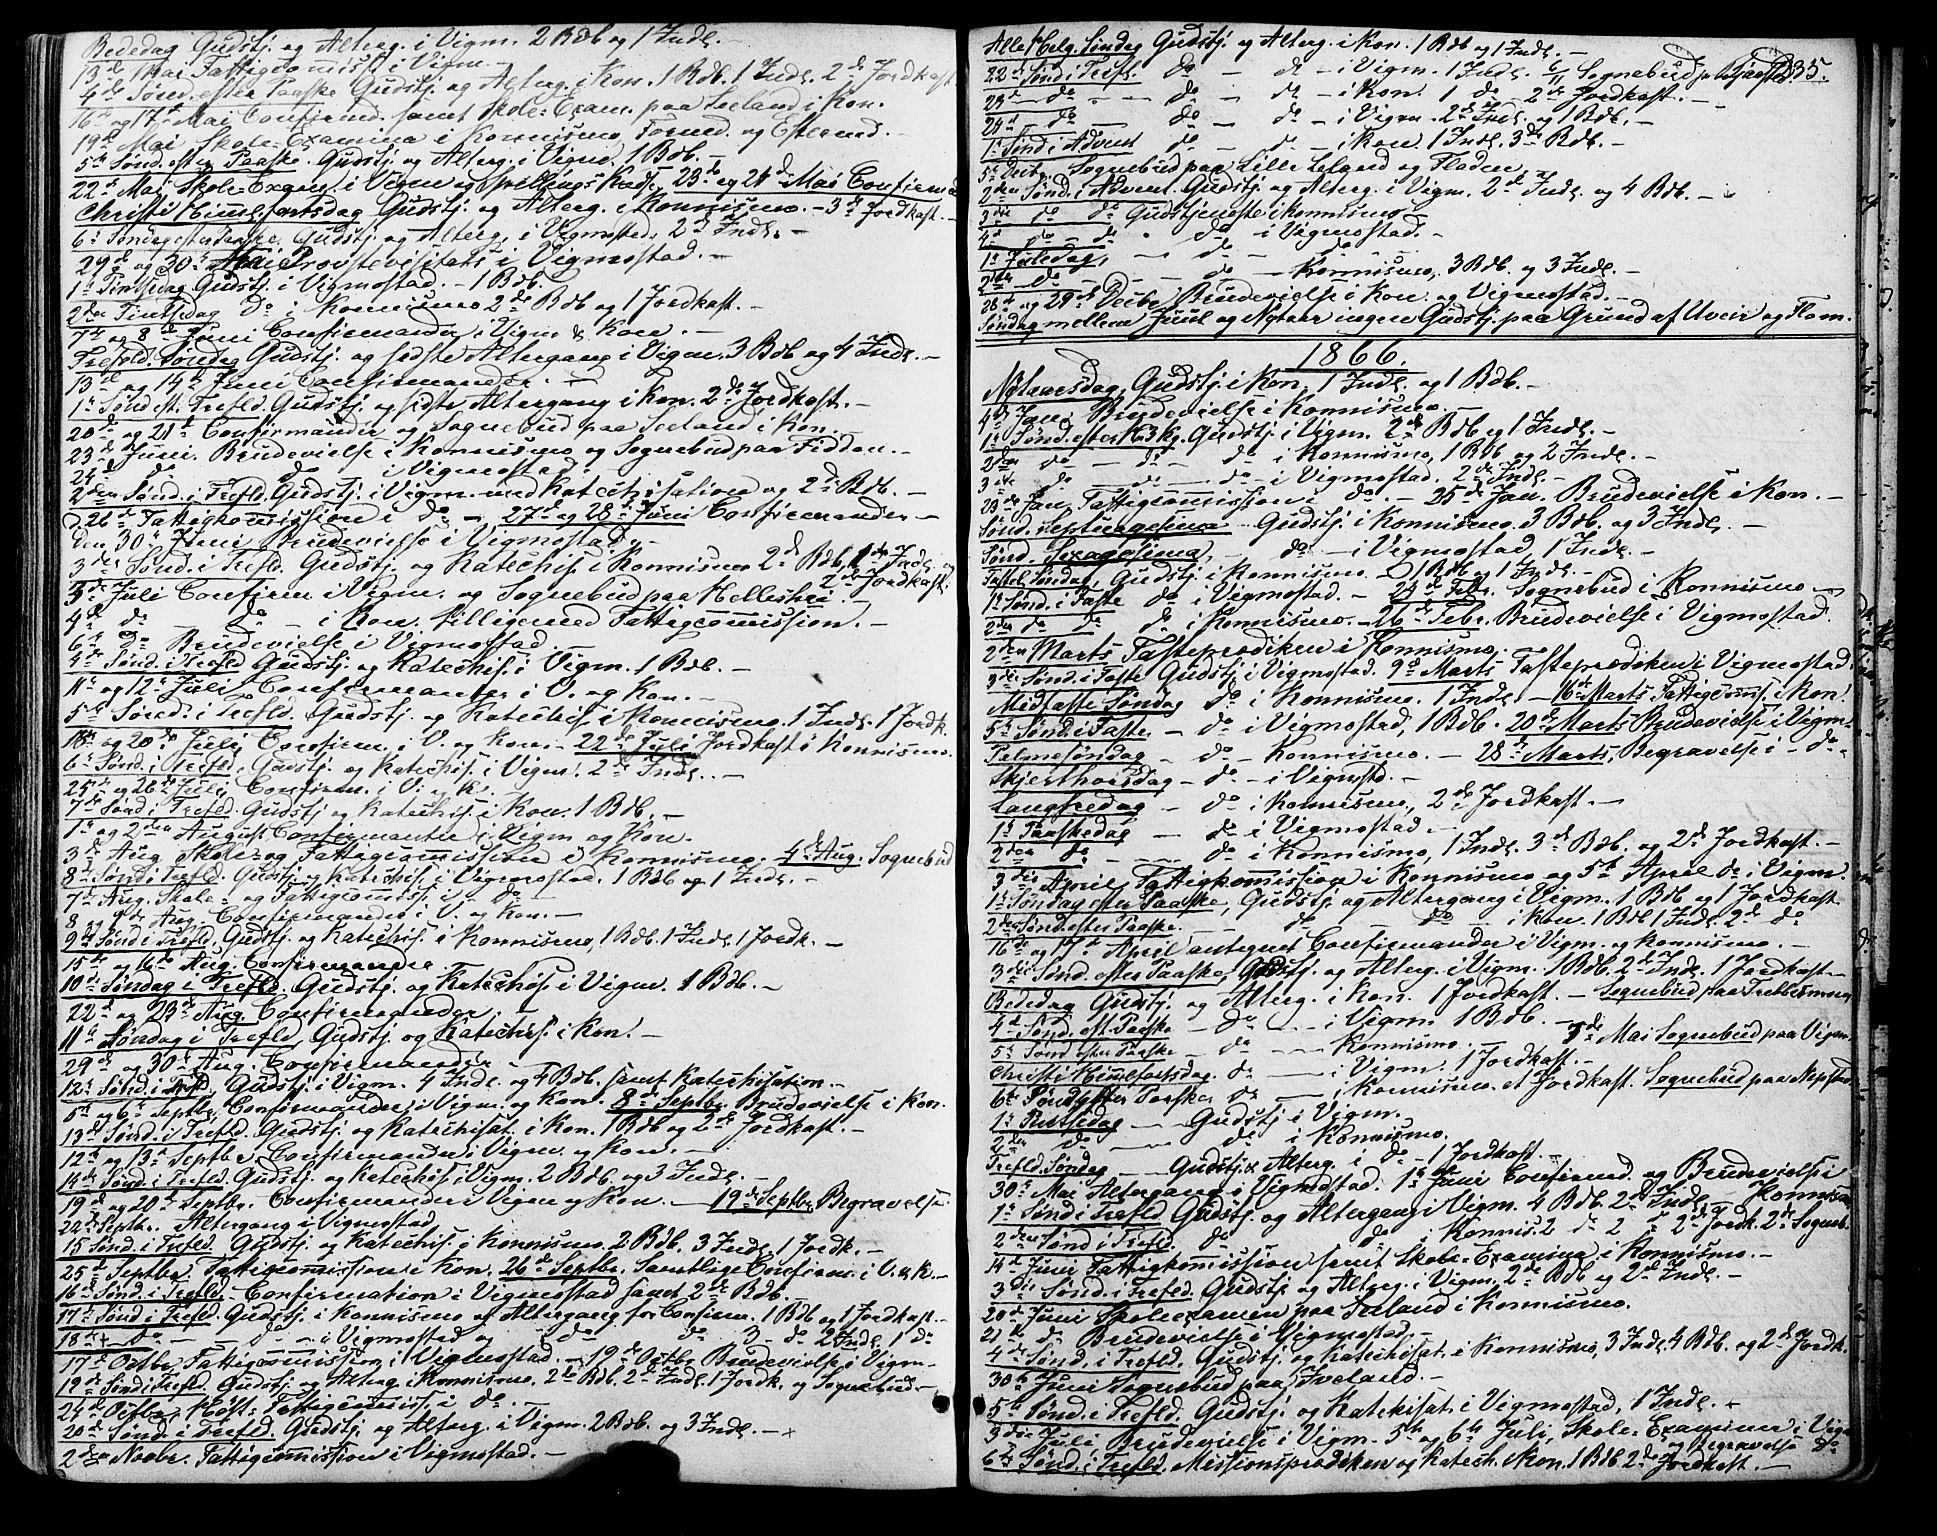 Bededag Gudstj. og Alterg. i Vigm. 2 Bdb og 1 Indl. -
13de Mai Fattigcomiss. i Vigm. -
4de Sønd. efter Paaske Gudstj. og Alterg. i Kon. 1 Bdb. 1 Indl. 2de Jordkast.
16de og 17de Mai Confirmd. samt Skole-Exam. paa Seeland i Kon.
19de Mai Skole-Examina i Konnismo, Formd. og Eftermd. -
5te Sønd. efter Paaske. Gudstj. og Alterg. i Vigm. 1 Bdb. -
22de Mai, Skole-Exam. i Vigm. og 23de og 24de Mai Confirmand
Christi Himmelfartsdag Gudstj. og Alterg. i Konnismo. - 3de Jordkast. -
6te Søndag efter Paaske, Gudstj. og Alterg. i Vigmostd. 2de Indl. -
29de og 30te Mai Provstevisitats i Vigmostad. -
1ste Pintsedag Gudstj. i Vigmostad. - 1 Bdb. -
2den Pintsedag do i Konnismo 2de Bdb og 1 Jordkast. -
7de og 8de Juni Confirmander i Vigm. & Kon. -
Trefold. Søndag Gudstj. og sidste Altergang i Vigm. 3 Bdb og 4 Indl. -
13de og 14de Juni Confirmander. -
1ste Sønd. eft. Trefld. Gudstj. og sidste Altergang i Kon. 2de Jordkast. -
20de og 21de Confirmander og Sognebud paa Seeland i Kon. -
23de Juni. Brudevielse i Konnismo og Sognebud paa Fidden. -
24de do do i Vigmostad. -
2den Sønd. i Trefld. Gudstj. i Vigm. med Katechisation og 2de Bdb. -
D. 26de Fattigkomission i do - 27de og 28de Juni Confirmander -
Den 30te Juni Brudevielse i Vigmostad. -
3de Sønd. i Trefld. Gudstj. og Katechis. i Konnismo 2de Bdb, 1 Indl. og 2de Jordkast.
3de Juli Confirm. i Vigm. og Sognebud paa Helleskei -
4de do - do - i Kon. tilligemed Fattigcomission. -
6te do Brudevielse i Vigmostad. -
4de Sønd. i Trefld Gudstj. og Katechis. i Vigm. 1 Bdb. -
11te og 12te Juli Confirmander i V. og Kon. -
5te Sønd. i Trefld. Gudstj. og Katechis. i Konnismo. 1 Indl. 1 Jordk.
18de og 20de Juli, Confirm. i V. og Kon. - 22de Juli Jordkast i Konnismo.
6te Sønd. i Trefld. Gudstj. og Katechis. i Vigm. 2de Indl. -
25de og 26de Juli Confirm. i V. og K. -
7de Sønd. i Trefld. Gudstj. og Katechis. i Kon. 1 Bdb. -
1ste og 2den August Confirmander i Vigm. og Kon.
3de Aug. Skole- og Fattigcomission i Konnismo. - 4de Aug. Sognebud
8de Sønd. i Trefld. Gudstj. og Katechis. i Vigmostad. 1 Bdb og 1 Indl. -
7de Aug. Skole- og Fattigcomiss. i - do -
8 og 9de Aug. Confirmander i V. og Kon. -
9de Sønd. i Trefld. Gudstj. og Katechis. i Konnismo, 1 Bdb. 1 Indl. 1 Jordk. -
15de og 16de Aug. Confirmander
10de Søndag i Trefld. Gudstj. og Katechis. i Vigm. 1 Bdb. -
22de og 23de Aug. Confirmander. -
11te Søndag i Trefld Gudstj. og Katechis. i Kon. -
29de og 30te Aug. Confirmander. -
12te Sønd. i Trefld. Gudstj. i Vigm. 4 Indl. og 4 Bdb. samt Katechisation. -
5te og 6te Septbr. Confirmander i Vigm. og Kon. 8de Septbr. Brudevielse i Kon.
13de Sønd. i Trefld. Gudstj. og Katechisat. i Kon. 1 Bdb og 2de Jordkast. -
12te og 13de Septbr Confirmander i Vigm. og Kon. -
14de Sønd. i Trefld. Gudstj. og Katechis. i Vigm. 2 Bdb. og 3 Indl. -
19de og 20de Septbr. Confirmander i Vigm. og Kon. - 19de Septbr, Begravelse
22de Septbr. Altergang i Vigmostad.
15 Sønd. i Trefld. Gudstj. og Katechis. i Konnismo. 2 Bdb. 3 Indl. 1 Jordk. -
25de Septbr Fattigcomission i Kon. 26de Septbr. Samtlige Confirm. i V. & K. -
16de Sønd. i Trefld. - Confirmation i Vigmostad samt 2de Bdb. -
17de Sønd i Trefld Gudstj. i Konnismo og Altergang for Confirm. 1 Bdb og 1 Jordkast -
18de + do - do - i Vigmostad og do do 3 - do 2 Indl. 1 do
17de Octbr Fattigcomission i Vigmostad. - 19de Octbr. Brudevielse i Vigm -
19de Sønd. i Trefld, Gudstj. og Alterg. i Konnismo. 2de Bdb. 2de Indl. 1 Jordk. og Sognebud. -
24de Octbr. Høst-Fattigcomiss. i do -
20de Sønd. i Trefld. Gudstj. og Alterg. i Vigm. 2 Bdb. og 3 Indl. -
2den Novbr. Fattigcomission i Vigmostad. -
235.
Alle Helg. Søndag Gudstj. og Alterg. i Kon. 1 Bdb og 1 Indl. -
22de Sønd. i Trefld. do - do - i Vigm. 1 Indl. 6/11 Sognebud paa
23de - do - do - do - i Kon. 1 do - 2de Jordkast. -
24de - do - do - do - i Vigm. 2de Indl. og 1 Bdb. -
1ste Sønd i Advent do - do - i Kon. 1 Indl. 3de Bdb. -
5te Decbr. Sognebud paa Lille Seland og Fladen. -
2den Sønd. i Advent Gudstj. og Alterg. i Vigm. 2de Indl. og 4 Bdb. -
3die do do Gudstjeneste i Konnismo -
4de - do - do - do i Vigmostad. -
1ste Juledag, - do - do -
2den do - do - Konnismo, 3 Bdb. og 3 Indl. -
28de og 29de Decbr Brudevielse i Kon. og Vigmostad. -
Søndag mellem Juul og Nytaar ingen Gudstj. paa Grund af Uveir og Flom.
1866.
Nytaarsdag, Gudstj. i Kon. 1 Indl. og 1 Bdb. -
4de Jan. Brudevielse i Konnismo -
1ste Sønd. efter H3Kg. Gudstj. i Vigm. 2de Bdb og 1 Indl. -
2den do - do - do i Konnismo, 1 Bdb og 2 Indl. -
3die do - do - do i Vigmostad. 2de Indl. -
23de Jan. Fattigcomission i do. - 25de Jan. Brudevielse i Kon. -
Sønd. septuagesima Gudstj. i Konnismo. 3 Bdb. og 3 Indl. -
Sønd. Sexagesima, - do - i Vigmostad, 1 Indl. -
Fastel. Søndag, Gudstj. i Konnismo. - 1 Bdb og 1 Indl. -
1ste Sønd. i Faste do i Vigmostad. - 24de Febr. Sognebud i Konnismo -
2den do do do i Konnismo. - 26de Febr. Brudevielse i Vigmostad.
2den Marts Fasteprædiken i Konnismo. -
3die Sønd. i Faste Gudstj. i Vigmostad. 9de Marts Fasteprædiken i Vigmostad.
Midfaste Søndag do i Konnismo. 1 Indl. - 16de Marts Fattigcomiss. i Kon.
5te Sønd. i Faste - do - i Vigmostad, 1 Bdb. 20de Marts Brudevielse i Vigm.
Palmesøndag - do - Konnismo. - 28de Marts, Begravelse i - do -
Skjerthorsdag - do - i Vigmostd. -
Langfredag - do i Konnismo, 2de Jordkast. -
1ste Paaskedag - do i Vigmostad. -
2den do - do i Konnismo, 1 Indl. 3de Bdb. og 2de Jordkast. -
3die April, Fattigkomission i Konnismo og 5te April do i Vigm.
1ste Søndag efter Paaske, Gudstj. og Altergang i Vigm. 1 Bdb og 1 Jordkast.
2den Sønd. efter Paaske. - do - do - i Kon. 1 Bdb 1 Indl. 2de do
16de og 17de April antegnet Confirmander i Vigm. og Konnismo. -
3die Sønd. efter Paaske, Gudstj. og Alterg. i Vigm. 1 Bdb. 2de Indl. 1 Jordkast -
Bededag Gudstj. og Alterg. i Kon. 1 Jordkast. - Sognebud paa
4de Sønd. eft. Paaske - do - i Vigm. 1 Bdb. - Mai Sognebud paa Vigm.
5te Sønd efter Paaske - do - Konnismo. -
Christi Himelfartsdag do - i Vigm. 1 Jordkast. -
6te Sønd efter Paaske do - i Konnismo. et Jordkast. Sognebud paa
1ste Pintsedag - Gudstj. i Vigm.
2den do - do i Konnismo.
Trefld. Søndag - Gudstj. & Alterg. i do - 1 Jordkast. -
30te Mai Altergang i Vigmostad. 1ste Juni Confirmd. og Brudevielse i Konnismo
1ste Sønd. i Trefld. Gudstj. og Altergang i Vigm. 4 Bdb. 2de Indl. -
2den Sønd i Trefld. do - do i Konnis. 2 do 2 do 2de Jordk. 2de Sogneb.
14de Juni Fattigkomission samt Skole-Examina i Konnismo. -
3die Sønd. i Trefld. Gudstj. og Alterg. i Vigm. 2de Bdb og 2de Indl. -
20de Juni Skoleexamen paa Seeland i Konnismo.
21de do Brudevielse i Vigmostad -
4de Sønd. i Trefld. Gudstj. og Katechisat. i Konnismo, 3 Indl. 4 Bdb. og 2de Jordk.
30te Juni Sognebud paa Iveland. -
5te Sønd. i Trefld. Gudstj. og Katekisat. i Vigmostad, 1 Indl. -
3die Juli, Brudevielse i Vigm. 5te og 6te Juli, Skole-Examina i Vigm. og Begravelse do
6te Sønd. i Trefld. Missionsprædiken og Katech. i Kon. 1 Bdb 2de Jordkast. -